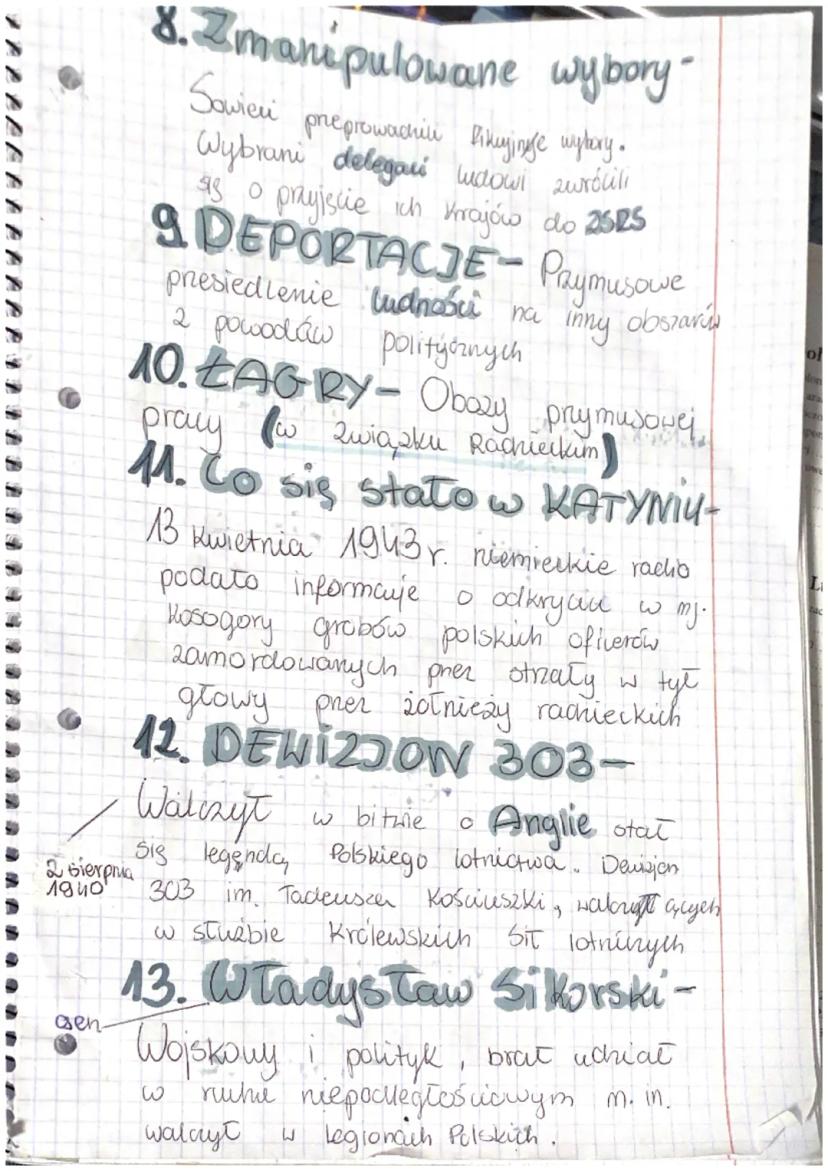 8. Zmanipulowane wybory-
Sowieci przeprowadzili fikcyjne wybory.
Wybrani delegaci ludowi zwrócili
się o przyjęcie ich krajów do ZSRS
9. DEPORTACJE- Przymusowe
przesiedlenie ludności na inny obszarów
z powodów politycznych
10. ŁAGRY- Obozy przymusowej
pracy (w związku Radzieckim)
11. Co się stało w KATYNIU-
13 kwietnia 1943r. niemieckie radio
podało informacje o odkryciu w mj.
Kosogory grobów polskich oficerów
zamordowanych przez strzały w tył
głowy przez żołnieży radzieckich
12. DEWIZJON 303-
Walczył w bitwie o Anglie stał
się legendą Polskiego lotnictwa. Dewizjon
2 sierpnia
1940
303 im. Tadeusza Kościuszki, walczących
w służbie Królewskich Sił lotniczych
13. Władysław Sikorski-
gen
Wojskowy i polityk, brał udział
w ruchu niepodległościowym m.in.
walczył w Legionach Polskich.